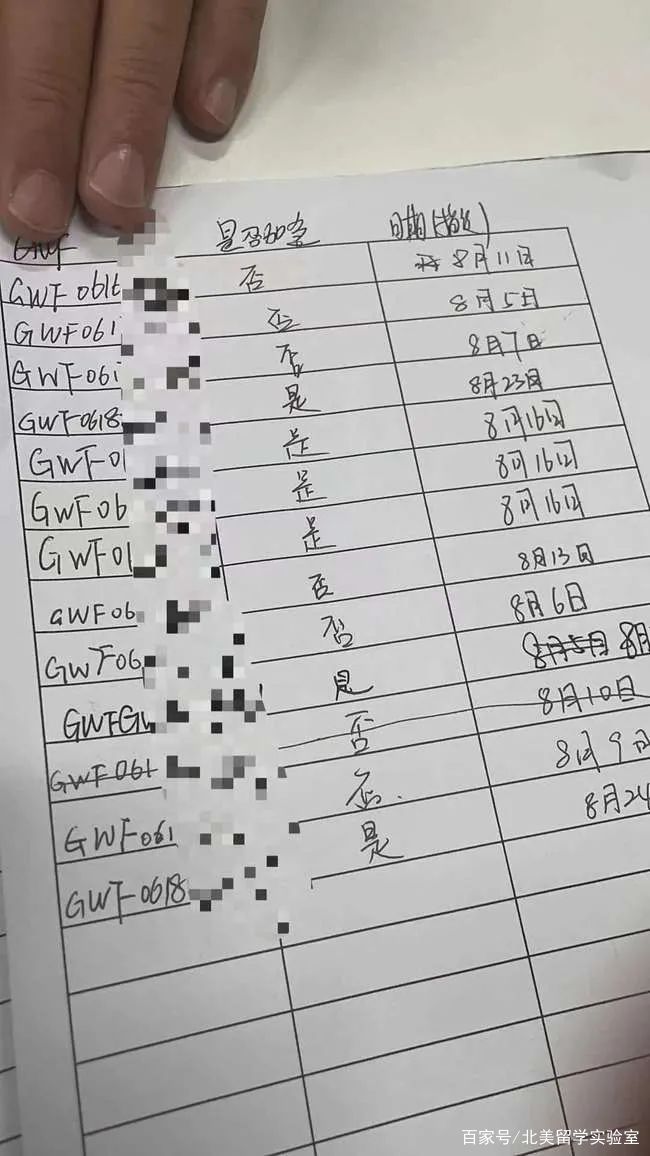 GWF 是否加急 日期
GWF 061 否 8月11日
GWF061 否 8月5日
GWF061 否 8月7日
GWF0618 是 8月23日
GWF0 是 8月16日
GWF06 是 8月16日
GWF0 是 8月16日
GWF06 否 8月13日
GWF06 否 8月6日
GWFGW 是 8月5日 8月
GWF-061 否 8月10日
GWF061 否. 8月9日
GWF0618 是 8月24
百家号/北美留学实验室